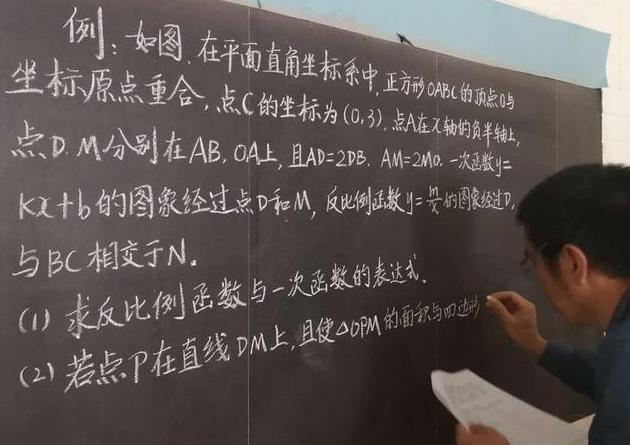 例：如图，在平面直角坐标系中，正方形OABC的顶点O与
坐标原点重合，点C的坐标为(0,3)，点A在x轴的负半轴上，
点D.M分别在AB，OA上，且AD=2DB．AM=2MO．一次函数y=
kx+b的图象经过点D和M，反比例函数y=m/x的图象经过D，
与BC相交于N．
(1) 求反比例函数与一次函数的表达式．
(2) 若点P在直线DM上，且使△OPM的面积与四边形